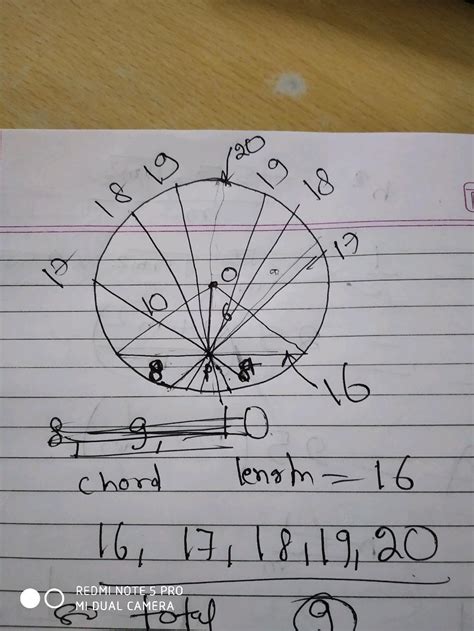 20
19
19
18
18
17
17
O
10
6
8
P
8
16
8, 9, 10
chord length = 16
16, 17, 18, 19, 20
total 9
REDMI NOTE 5 PRO
MI DUAL CAMERA